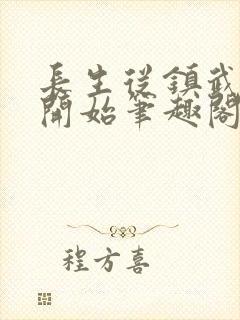 長生從鎮武
開始筆趣閣
程方喜